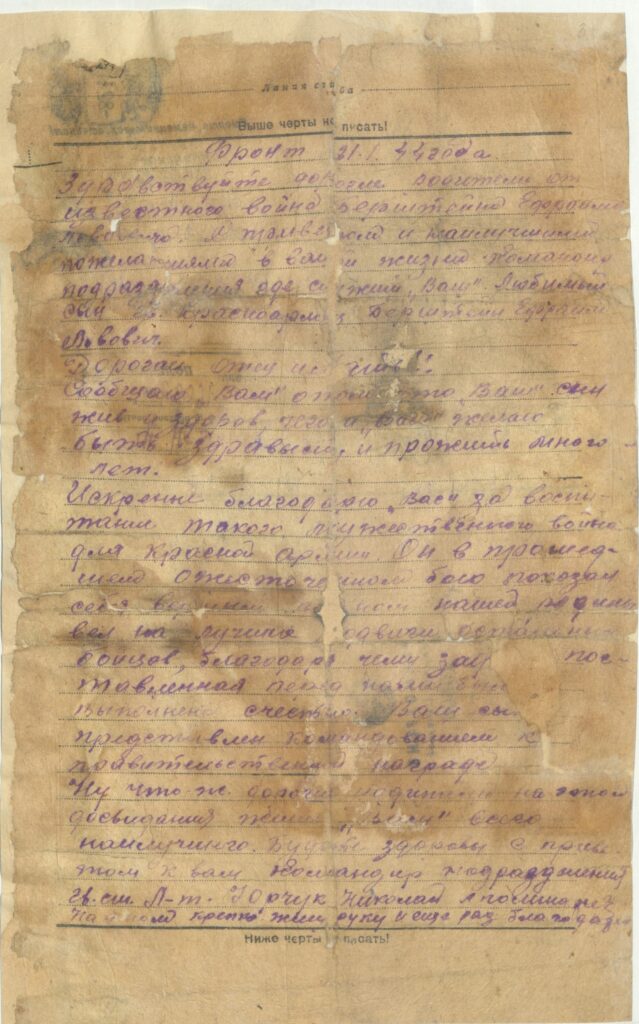 Линия сгиба
Выше черты не писать!
Фронт 21.1.44 года
Здравствуйте дорогие родители от
известного война Бернштейна Ефраима
Львовича. С приветом и наилучшими
пожеланиями в вашей жизни Командир
подразделения где служит „Ваш" Любимый
сын Гв. Красноармеец Бернштейн Ефраим
Львович.
Дорогая отец и мать!!
Сообщаю „Вам" о том что „Ваш" сын
жив и здоров, чего и „Вам" желаю
быть здравыми и прожить много
лет.
Искренне благодарю „Вас" за воспи-
тание такого мужественного война
для красной армии. Он в прошед-
шем ожесточенном бою показал
себя верным сыном нашей родины
вел на лучшие подвиги остальных
бойцов, благодаря чему пос-
тавленная перед нами была
выполнена с честью. Ваш сын
представлен командованием к
правительственной награде
Ну что ж дорогие родители на этом
досвидания желаю „Вам" всего
наилучшего. Будьте здоровы с приве-
том к вам Командир подразделения
Гв. ст. Л-т. Юрчук Николай
крепко жму руку и еще раз благодарю
Ниже черты не писать!